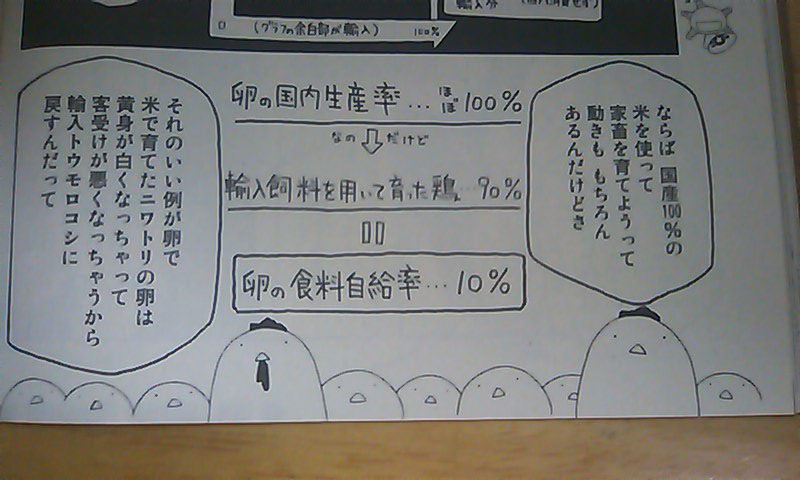 (グラフの余白部が輸入)
100%
ならば 国産100%の
米を使って
家畜を育てようって
動きももちろん
あるんだけどさ
卵の国内生産率…ほぼ100%
なのだけど
輸入飼料を用いて育った鶏…90%
卵の食料自給率…10%
それのいい例が卵で
米で育てたニワトリの卵は
黄身が白くなっちゃって
客受けが悪くなっちゃうから
輸入トウモロコシに
戻すんだって